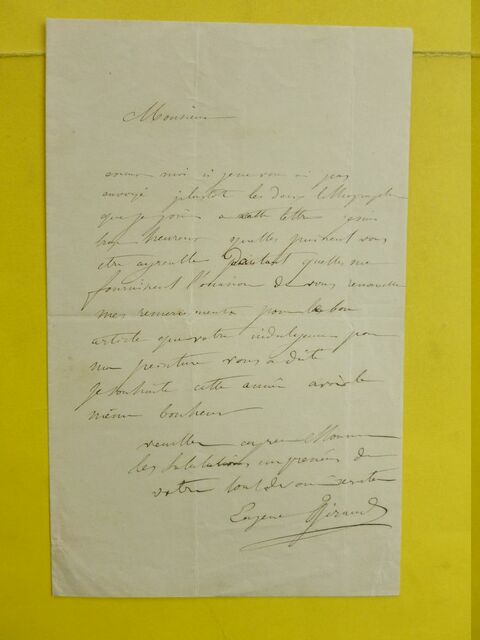 Monsieur
si je ne vous ai pas
envoyé plustot les deux lithographies
que je joins a cette lettre
trop heureux quelles puissent vous
etre agreable pendant quelles me
fournissent l'occasion de vous renouveller
mes remerciments pour le bon
article que votre indulgence pour
ma peinture vous a dicté
Je souhaite cette année avoir le
même bonheur
veuillez agreer Monsieur
les salutations empressées de
votre tout devoué serviteur
Eugene Giraud